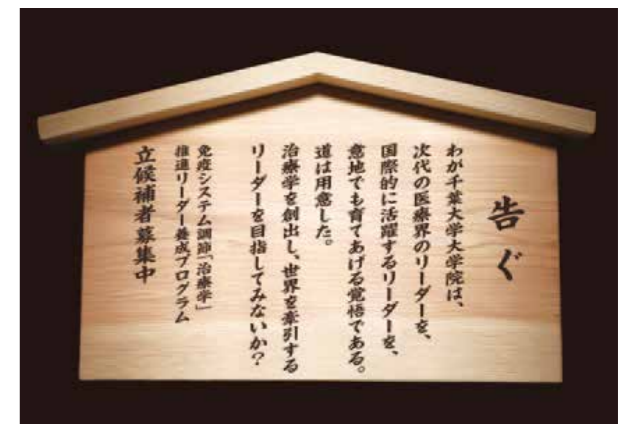 告ぐ
わが千葉大学大学院は、
次代の医療界のリーダーを、
国際的に活躍するリーダーを、
意地でも育てあげる覚悟である。
道は用意した。
治療学を創出し、世界を牽引する
リーダーを目指してみないか？
免疫システム調節「治療学」
推進リーダー養成プログラム
立候補者募集中